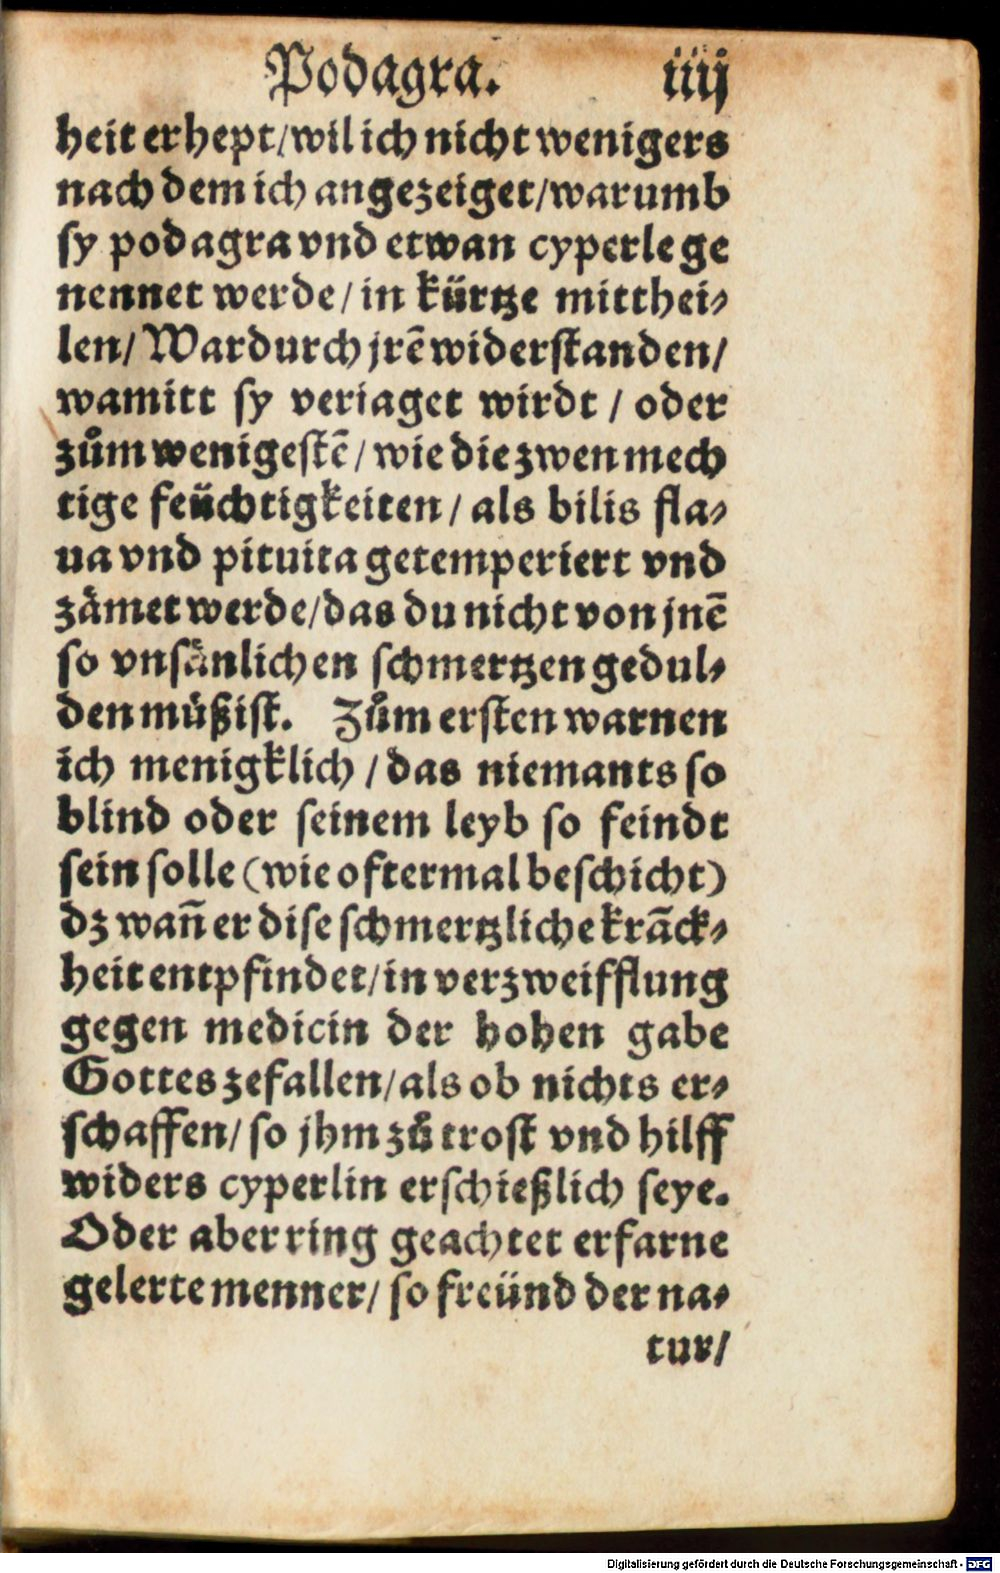 Podagra. iiij
heit erhept/ wil ich nicht wenigers
nach dem ich angezeiget/ warumb
sy podagra vnd etwan cyperle ge
nennet werde/ in kürtze mitthei⸗
len/ Wardurch jrē widerstanden/
wamitt sy veriaget wirdt/ oder
zům wenigestē/ wie die zwen mech
tige feüchtigkeiten/ als bilis fla⸗
ua vnd pituita getemperiert vnd
zämet werde/ das du nicht von jnē
so vnsänlichen schmertzen gedul⸗
den müßist. Zům ersten warnen
ich menigklich/ das niemants so
blind oder seinem leyb so feindt
sein solle (wie oftermal beschicht)
dz wañ er dise schmertzliche krāck⸗
heit entpfindet/ in verzweifflung
gegen medicin der hohen gabe
Gottes zefallen/ als ob nichts er⸗
schaffen/ so jhm zů trost vnd hilff
widers cyperlin erschießlich seye.
Oder aber ring geachtet erfarne
gelerte menner/ so freünd der na⸗
tur/
Digitalisierung gefördert durch die Deutsche Forschungsgemeinschaft - DFG